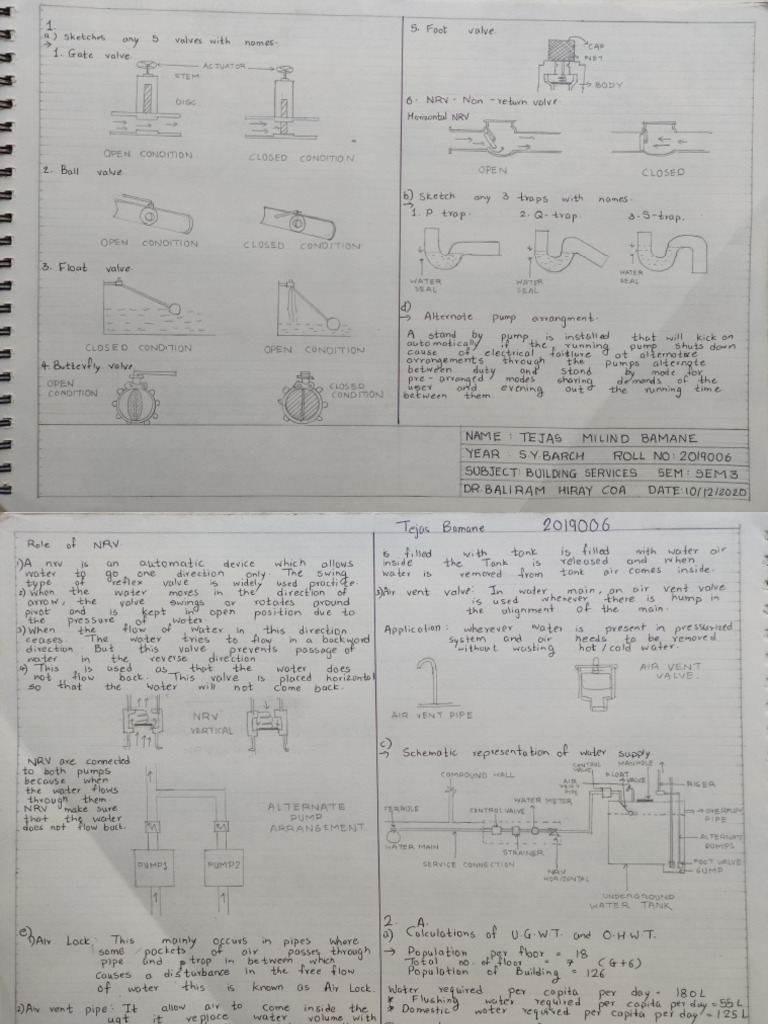 1.
a) Sketches any 5 valves with names.
→
1. Gate valve
ACTUATOR
STEM
DISC
OPEN CONDITION
CLOSED CONDITION
2. Ball valve
OPEN CONDITION
CLOSED CONDITION
3. Float valve
CLOSED CONDITION
OPEN CONDITION
4. Butterfly valve
OPEN
CONDITION
CLOSED
CONDITION
5. Foot valve
CAP
NET
BODY
6. NRV - Non-return valve
Horizontal NRV
OPEN
CLOSED
b) Sketch any 3 traps with names.
→
1. P trap
2. Q-trap
3. S-trap.
WATER
SEAL
WATER
SEAL
WATER
SEAL
d)
→ Alternate pump arrangment.
A stand by pump is installed that will kick on
automatically if the running pump shuts down
cause of electrical failure at alternative
arrangements through the pumps alternate
between duty and stand by mode for
pre-arranged modes sharing demands of the
user and evening out the running time
between them.
NAME : TEJAS MILIND BAMANE
YEAR : S.Y.BARCH ROLL NO: 2019006
SUBJECT: BUILDING SERVICES SEM: SEM 3
DR.BALIRAM HIRAY COA DATE:10/12/2020
Tejas Bamane 2019006
Role of NRV.
1) A nrv is an automatic device which allows
water to go one direction only. The swing
type of reflex valve is widely used practice.
2) When the water moves in the direction of
arrow, the valve swings or rotates around
pivot and is kept in open position due to
the pressure of water.
3) When the flow of water in this direction
ceases. The water tries to flow in a backward
direction. But this valve prevents passage of
water in the reverse direction
4) This is used as that the water does
not flow back. This valve is placed horizontal
so that the water will not come back.
NRV
VERTICAL
NRV are connected
to both pumps
because when
the water flows
through them
NRV make sure
that the water
does not flow back.
PUMP1
PUMP2
ALTERNATE
PUMP
ARRANGEMENT
e)
1) Air Lock. This mainly occurs in pipes where
some pockets of air passes through
pipe and trap in between which
causes a disturbance in the free flow
of water this is known as Air Lock.
2) Air vent pipe: It allow air to come inside the
it replace water volume with
is filled with tank is filled with water air
inside the Tank is released and when
water is removed from tank air comes inside.
3) Air vent valve: In water main, an air vent valve
is used wherever there is hump in
the alignment of the main.
Application: wherever water is present in pressurized
system and air needs to be removed
without wasting hot/cold water.
AIR VENT PIPE
AIR VENT
VALVE.
c)
→ Schematic representation of water supply.
COMPOUND WALL
CONTROL
VALVE
MANHOLE
AIR
VENT
PIPE
FLOAT
VALVE
RISER
FERRULE
WATER METER
CONTROL VALVE
OVERFLOW
PIPE
WATER MAIN
STRAINER
ALTERNATE
PUMPS
SERVICE CONNECTION
NRV
HORIZONTAL
FOOT VALVE
SUMP
UNDERGROUND
WATER TANK
2. A.
a) Calculations of U.G.W.T. and O.H.W.T.
→ Population per floor = 18
Total no. of floor = 7 (G+6)
Population of Building = 126
Water required per capita per day = 180L
* Flushing water required per capita per day = 55L
* Domestic water required per capita per day = 125L